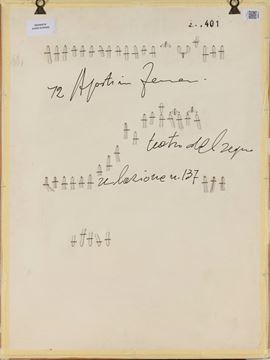 401
12 Agostino Ferrari.
teatro del segno
relazione n. 137